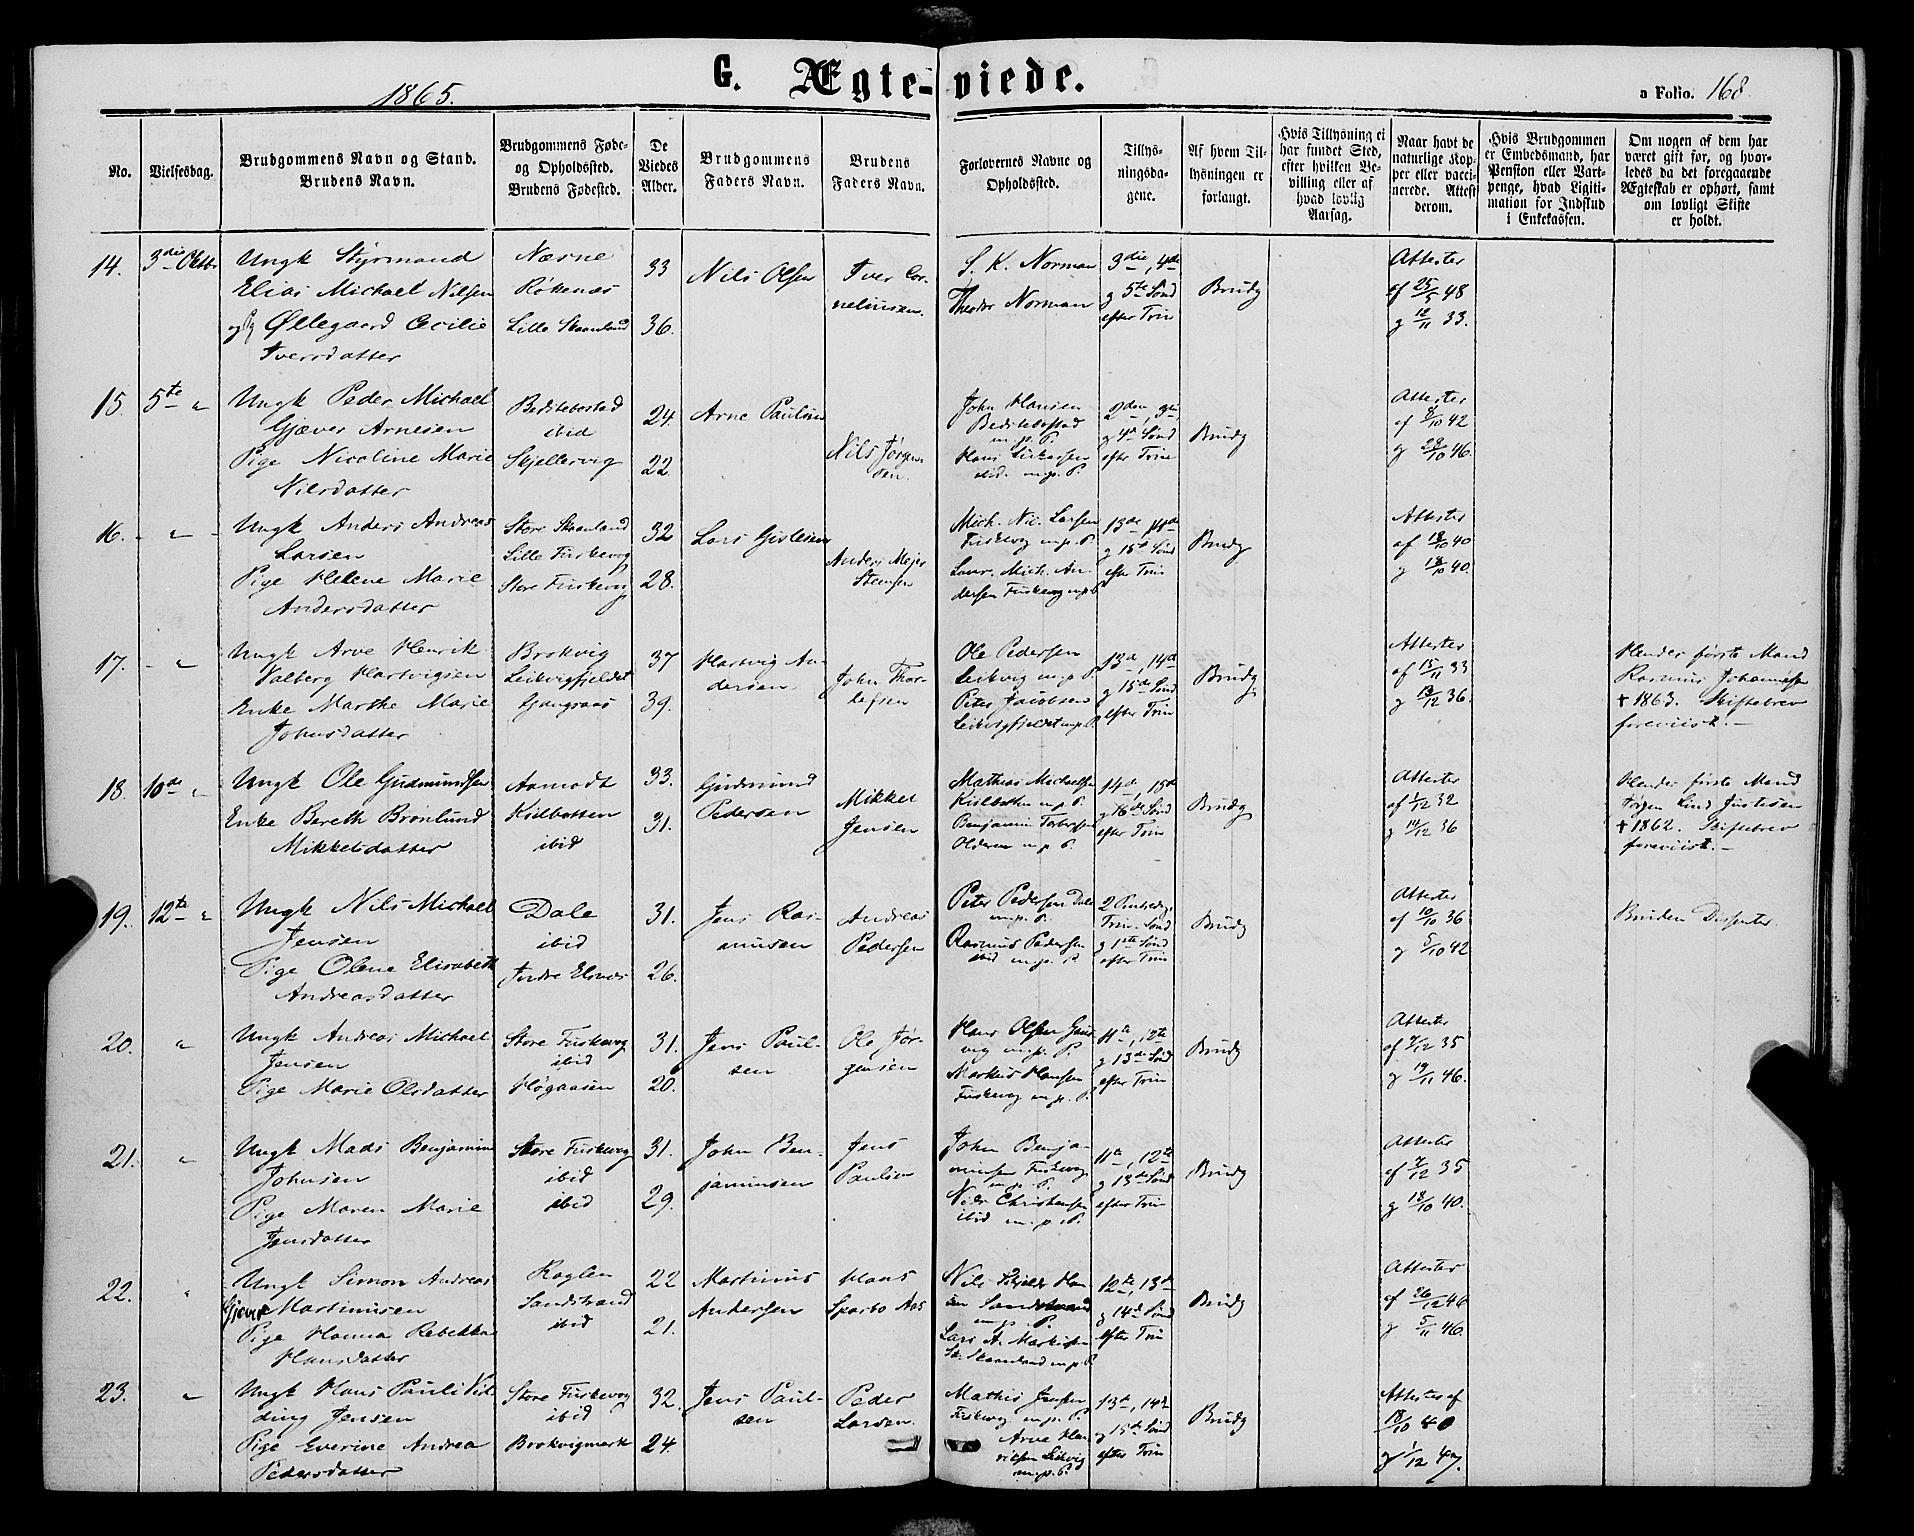 1865.
G. Ægteviede.
a Folio. 168
No.
Vielsesdag.
Brudgommens Navn og Stand.
Brudens Navn.
Brudgommens Føde-
og Opholdssted.
Brudens Fødested.
De
Viedes
Alder.
Brudgommens
Faders Navn.
Brudens
Faders Navn.
Forlovernes Navne og
Opholdssted.
Tillys-
ningsda-
gene.
Af hvem Til-
lysningen er
forlangt.
Hvis Tillysning ei
har fundet Sted,
efter hvilken Be-
villing eller af
hvad lovlig
Aarsag.
Naar havt de
naturlige Kop-
per eller vacci-
nerede. Attest
derom.
Hvis Brudgommen
er Embedsmand, har
Pension eller Vart-
penge, hvad Ligiti-
mation for Indskud
i Enkekassen.
Om nogen af dem har
været gift før, og hvor-
ledes da det foregaaende
Ægteskab er ophørt, samt
om lovligt Skifte
er holdt.
14.
3die Oktbr
Ungk Styrmand
Elias Michael Nilsen
og Øllegaard Cecilie
Iversdatter
Næsne
Røkenæs
Lille Skaanland
33
36.
Nils Olsen
Iver Cor-
neliussen.
S. K. Norman
Theodor Norman
3die, 4de
g 5te Sønd
efter Trin
Brudg
Attester
af 25/5 48
g 12/11 33.
15.
5te "
Ungk Peder Michael
Gjæver Arnesen
Pige Nicoline Marie
Nilsdatter
ibid
Skjellervig
24.
22.
Arne Paulsen
Nils Jørgen-
sen.
John Hansen
m. p. P.
ibid. m. p. P.
g 4de Sønd
efter Trin
Brudg
Attester
af 8/10 42
g 28/10 46.
16.
"
Ungk Anders Andreas
Larsen
Pige Helene Marie
Andersdatter
Store Skaanland
Lille Fuskevog
Store Fuskevog
32
28.
Lars Gislesen
Anders Mejer
Stensen
Mich. Nic. Larsen
Fuskevog m. p. P.
Laur. Mich. An-
dersen Fuskevog m.p.P.
13de, 14de
g 15de Sønd
efter Trin
Brudg
Attester
af 18/10 40
g 18/10 40.
17.
"
Ungk Arve Henrik
Valberg Hartvigsen
Enke Marthe Marie
Johnsdatter
Brokvig
Leikvigfjeldet
Gangsaas
37
39.
Hartvig An-
dersen.
John Thor-
lefsen
Ole Pedersen
Leikvig m. p. P.
Peter Jacobsen
Leikvigfjeldet m.p.P.
13de, 14de
g 15de Sønd
efter Trin
Brudg
Attester
af 15/11 33
g 13/12 36.
Hendes første Mand
Rasmus Johannessen
† 1863. Skiftebrev
foreviist.
18.
10de "
Ungk Ole Gudmundsen
Enke Bereth Brønlund
Mikkelsdatter
Aamodt
Kilbotten
ibid
33.
31.
Gudmund
Pedersen
Mikkel
Jensen
Mathias Michaelsen
Kilbotten m. p. P.
Benjamin
m. p. P.
14de, 15de
g 16de Sønd
efter Trin
Brudg
Attester
af 1/12 32
g 14/12 36
Hendes første Mand
Jørgen Lind Justesen
† 1862. Skiftebrev
foreviist.
19.
12te "
Ungk Nils Michael
Jensen
Pige Olene Elisabeth
Andreasdatter
Dale
ibid
Indre Elsnes
31.
26.
Jens Ras-
mussen
Andreas
Pedersen
Peter Pedersen Dale
m. p. P.
Rasmus Pedersen
ibid m. p. P.
Trin. Sønd
g 1ste Sønd
efter Trin
Brudg
Attester
af 10/10 36
g 5/10 42
Bruden Dissenter.
20.
"
Ungk Andreas Michael
Jensen
Pige Marie Olsdatter
Store Fuskevog
ibid
Høgaasen
31.
20.
Jens Paul-
sen
Ole Jør-
gensen
Hans Olsen
vig m. p. P.
Markus Hansen
Fuskevog m. p. P.
11te, 12te
g 13de Sønd
efter Trin
Brudg
Attester
af 7/12 35
g 19/11 46.
21.
"
Ungk Mads Benjamin
Johnsen
Pige Maren Marie
Jensdatter
Store Fuskevog
ibid
ibid
31.
29.
John Ben-
jaminsen
Jens
Paulsen
John Benja-
minsen Fuskevog
m. p. P.
Nils Christensen
ibid m. p. P.
11te, 12te
g 13de Sønd
efter Trin
Brudg
Attester
af 7/12 35
g 18/10 40.
22.
"
Ungk Simon Andreas
Gjæver Martinusen
Pige Hanna Rebekka
Hansdatter
Roglen
Sandstrand
ibid
22
21.
Martinus
Andersen
Hans
Sparbo Aas
Nils Han-
sen Sandstrand
m. p. P.
Lars A. Markusen
St. Skaanland m. p. P.
12te, 13de
g 14de Sønd
efter Trin
Brudg
Attester
af 26/12 46
g 5/11 46.
23.
"
Ungk Hans Pauli Vil-
ding Jensen
Pige Everine Andrea
Pedersdatter
Store Fuskevog
ibid
Brokvigmark
32.
24.
Jens Paul-
sen
Peder
Larsen.
Mathis Jensen
Fuskevog m. p. P.
Arve
Leikvig
m. p. P.
13de, 14de
g 15de Sønd
efter Trin
Brudg
Attester af
18/10 40
g 1/12 47.